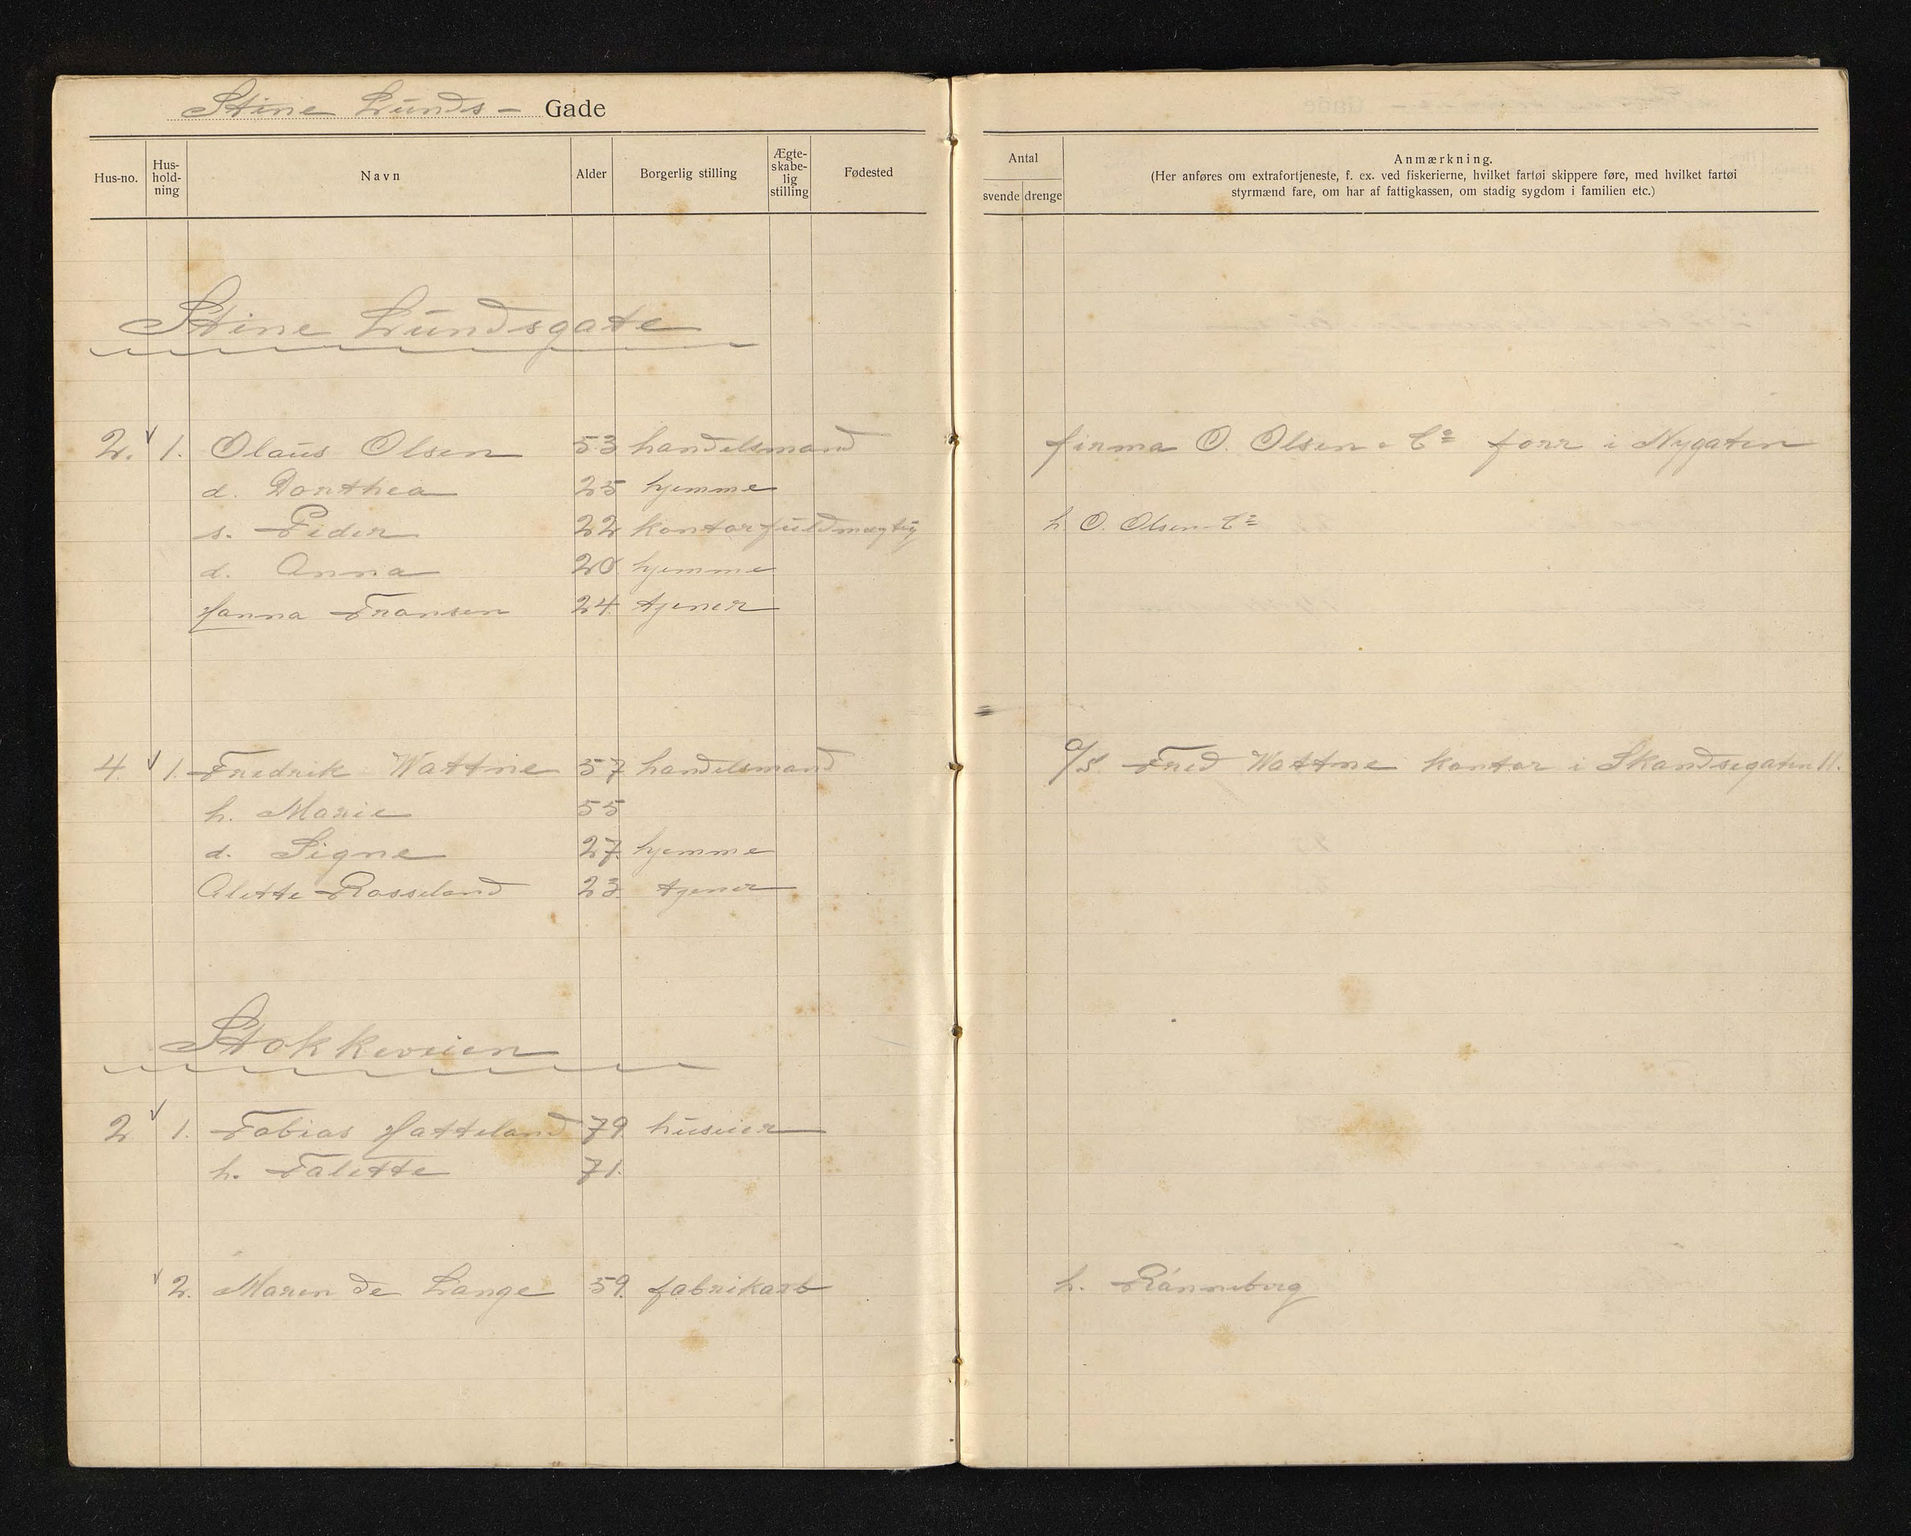 Stine Lunds - Gade
Hus-no. Hus-hold-ning Navn Alder Borgerlig stilling Ægte-skabe-lig stilling Fødested Antal svende drenge Anmærkning.
(Her anføres om extrafortjeneste, f. ex. ved fiskerierne, hvilket fartøi skippere føre, med hvilket fartøi
styrmænd fare, om har af fattigkassen, om stadig sygdom i familien etc.)
Stine Lundsgate
2. 1. Olaus Olsen 53 handelsmand firma O. Olsen & Co forr i Nygaten
d. Dorthea 25 hjemme
s. Peder 22 kontorfuldmægtig h. O. Olsen Co
d. Anna 20. hjemme
Hanna Fransen 24. tjener
4. 1. Fredrik Wattne 57 handelsmand a/s Fred Wattne kontor i Skandsegaten 11.
h. Marie 55
d. Signe 27. hjemme
Alette Rosseland 23. tjener
Stokkeveien
2 1. Tobias Hatteland 79 huseier
h. Talette 71.
2. Maren de Lange 59. fabrikarb h. Rønneberg